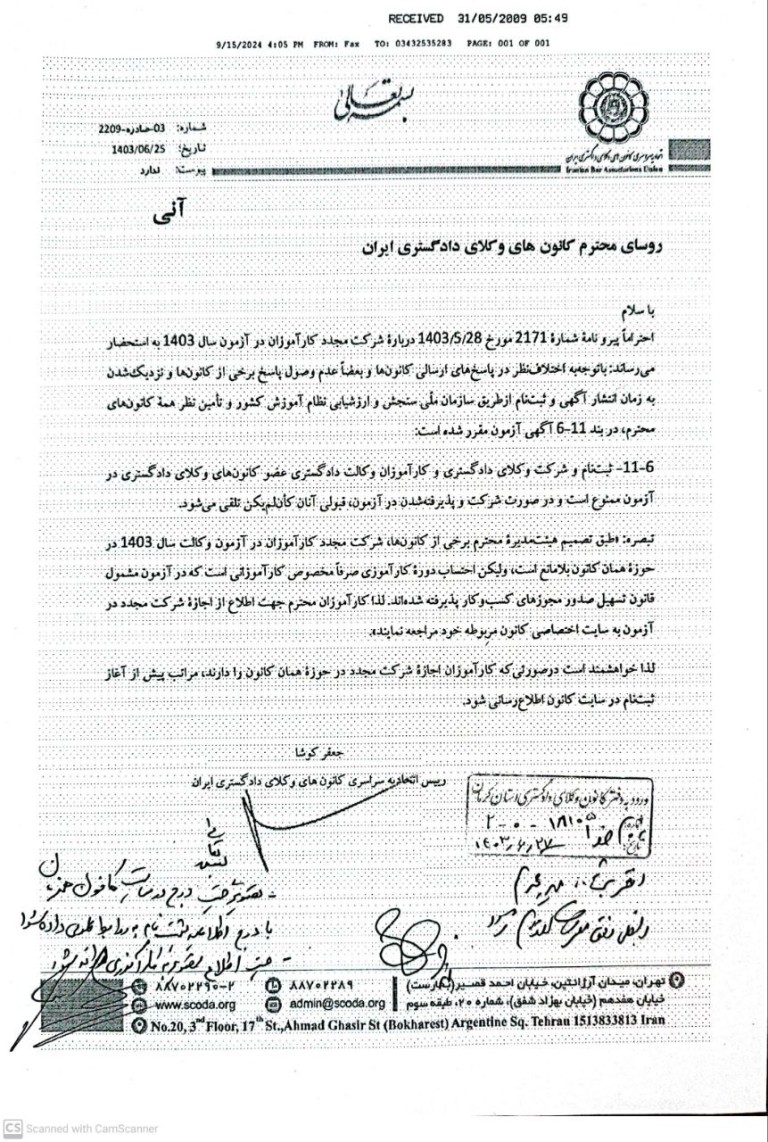 RECEIVED 31/05/2009 05:49
9/15/2024 4:05 PM FROM: Fax TO: 03432535283 PAGE: 001 OF 001
بسمه تعالی
شماره: 03-صادره-2209
تاریخ: 1403/06/25
پیوست: ندارد
اتحادیه سراسری کانون های وکلای دادگستری ایران
Iranian Bar Associations Union
آنی
روسای محترم کانون های وکلای دادگستری ایران
با سلام
احتراماً پیرو نامهٔ شمارهٔ 2171 مورخ 1403/5/28 دربارهٔ شرکت مجدد کارآموزان در آزمون سال 1403 به استحضار
می‌رساند: باتوجه‌به اختلاف‌نظر در پاسخ‌های ارسالی کانون‌ها و بعضاً عدم وصول پاسخ برخی از کانون‌ها و نزدیک‌شدن
به زمان انتشار آگهی و ثبت‌نام ازطریق سازمان ملّی سنجش و ارزشیابی نظام آموزش کشور و تأمین نظر همهٔ کانون‌های
محترم، در بند 11-6 آگهی آزمون مقرر شده است:
11-6- ثبت‌نام و شرکت وکلای دادگستری و کارآموزان وکالت دادگستری عضو کانون‌های وکلای دادگستری در
آزمون ممنوع است و در صورت شرکت و پذیرفته‌شدن در آزمون، قبولی آنان کأن‌لم‌یکن تلقی می‌شود.
تبصره: «طبق تصمیم هیئت‌مدیرهٔ محترم برخی از کانون‌ها، شرکت مجدد کارآموزان در آزمون وکالت سال 1403 در
حوزهٔ همان کانون بلامانع است، ولیکن احتساب دورهٔ کارآموزی صرفاً مخصوص کارآموزانی است که در آزمون مشمول
قانون تسهیل صدور مجوزهای کسب‌وکار پذیرفته شده‌اند. لذا کارآموزان محترم جهت اطلاع از اجازهٔ شرکت مجدد در
آزمون به سایت اختصاصی کانون مربوطه خود مراجعه نمایند».
لذا خواهشمند است درصورتی‌که کارآموزان اجازهٔ شرکت مجدد در حوزهٔ همان کانون را دارند، مراتب پیش از آغاز
ثبت‌نام در سایت کانون اطلاع‌رسانی شود.
جعفر کوشا
رییس اتحادیه سراسری کانون های وکلای دادگستری ایران
ورود به دفتر کانون وکلای دادگستری استان کرمان
شماره
تاریخ ۱۴۰۳/۶/۲۷
تهران، میدان آرژانتین، خیابان احمد قصیر (بخارست)
خیابان هفدهم (خیابان بهزاد شفق)، شماره ۲۰، طبقه سوم
۸۸۷۰۲۲۸۹
۸۸۷۰۲۲۹۰-۲
admin@scoda.org
www.scoda.org
No.20, 3nd Floor, 17th St., Ahmad Ghasir St (Bokharest) Argentine Sq. Tehran 1513833813 Iran
CS Scanned with CamScanner